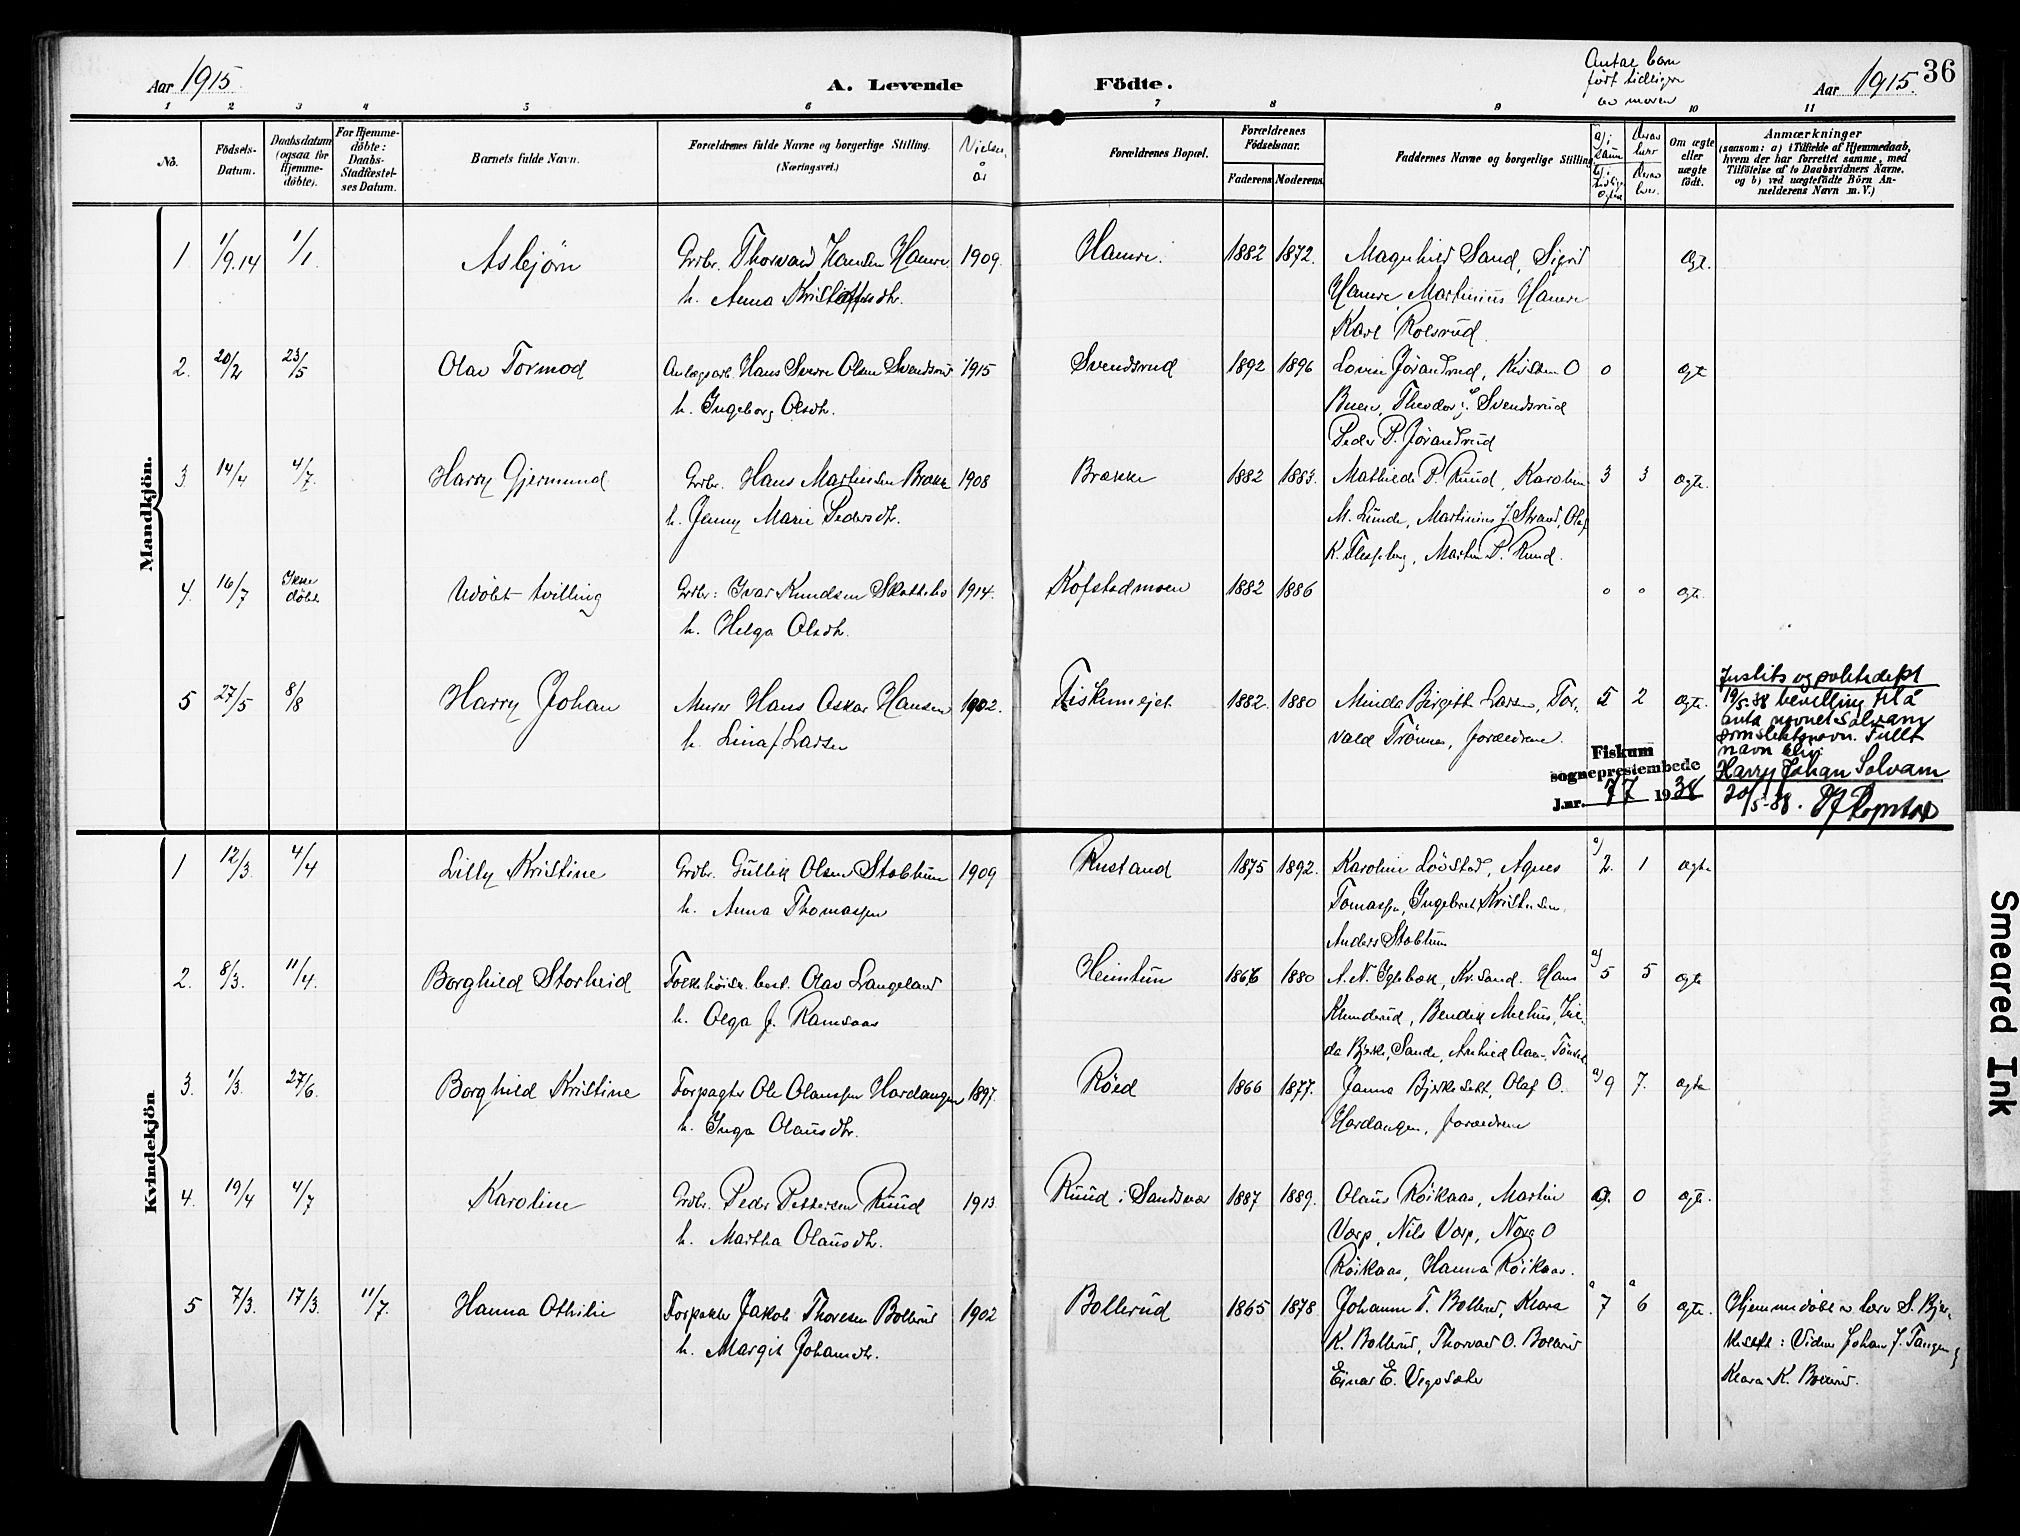 Aar 1915.
A. Levende
Födte.
Antal barn
født tidligere
av moren
Aar 1915.
36
1 2 3 4 5 6 7 8 9 10 11
No.
Födsels-
Datum.
Daabsdatum
(ogsaa for
Hjemme-
döbte).
For Hjemme-
döbte:
Daabs-
Stadfæstel-
ses Datum.
Barnets fulde Navn.
Forældrenes fulde Navne og borgerlige Stilling.
(Næringsvei.)
Vielses-
år
Forældrenes Bopæl.
Forældrenes
Födselsaar.
Faderens Moderens
Faddernes Navne og borgerlige Stilling
Om ægte
eller
uægte
födt.
Anmærkninger
(saasom: a) i Tilfælde af Hjemmedaab,
hvem der har forrettet samme, med
Tilföielse af to Daabsvidners Navne.
og b) ved uægtefödte Börn An-
melderens Navn m. V.)
Mandkjön.
1 1/9.14 1/1. Asbjørn Grdbr. Thorvald Hansen Hamre 1909. Hamre. 1882 1872. Magnhild Sand, Sigrid Ægt.
h. Anna Kristoffersdtr. Hamre, Martinius Hamre
Karl Rolsrud.
2. 20/2 23/5 Olav Tormod Anlægsarb. Hans Sverre Olsen Svendsrud 1915 Svendsrud 1892 1896 Lovise Jørandrud, Kristen O 0 ægte
h. Ingeborg Olsdtr. Buen, Theodor J. Svendsrud
Peder P. Jørandrud
3 14/4 4/7. Harry Gjermund Grdbr. Hans Martinsen Brække 1908 Brække 1882 1883. Mathilde P. Ruud, Karoline 3 3 ægte.
h. Jenny Marie Pedersdtr. M. Lunde, Martinius J. Strand, Olaf
K. Flesseberg, Martin P. Ruud.
4. 16/7 Ikke døbt Udøbt tvilling Grdbr: Ivar Knudsen Skattebo 1914. Kofstadmoen 1882 1886 0 0 ægte.
h. Helga Olsdtr.
5 27/5 8/8 Harry Johan Murer Hans Oskar Hansen 1902. Fiskumejet 1882. 1880 Minda Birgitte Larsen, Tor- 5 2 ægte.
h. Lina J. Larsen vald Trønnes, forældrene.
Justits og politidept
19/5-38 bevilling til å
anta navnet Solvam
som slektsnavn. Fullt
navn blir:
Harry Johan Solvam
20/5-38.
Fiskum
sogneprestembede
J.nr. 77 1938
Kvindekjön
1 12/3. 4/4 Lilly Kristine Grdbr. Gullik Olsen Stabtun 1909 Rustand 1875 1892. Karoline Løvstad, Agnes a) 2. 1 ægte
h. Anna Thomassen Tomassen, Ingebret Kristensen.
Anders Stabtun
2. 8/3. 11/4. Borghild Storheid Folkehøisk. best. Olav Langeland Heimtun 1866 1880 A. N. Iglebæk, Kr.sand. Hans a) 5 5 ægte
h. Olga J. Ramsaas Klunderud, Bendik Melhus,
da Bjerke, Sande,
3. 1/3. 27/6. Borghild Kristine Forpagter Ole Olaussen Hardangen 1897. Røed 1866 1877. Janna Bjerkesett, Olaf O. a) 9 7. ægte
h. Inga Olausdtr. Hardangen, forældrene
4. 19/4 4/7 Karoline Grdbr. Peder Pettersen Ruud 1913. Ruud i Sandsvær 1887 1889. Olaus Røikaas, Martin 0. 0 ægte.
h. Martha Olausdtr. Vorp, Nils Vorp, Nora O
Røikaas, Hanna Røikaas.
5 7/3. 17/3. 11/7. Hanna Othilie Forpakter Jakob Thoresen Bollerud 1902 Bollerud 1865 1878 Johanne T. Bollerud, Klara a 7 a 6 ægte. Hjemmedøbt av lærer S. Bjer-
h. Margit Johansdtr. K. Bollerud, Thorvald O. Bollerud kesett: Vidner Johan J. Tangen &
Einar E. Vegosæter Klara K. Bollerud.
Smeared Ink